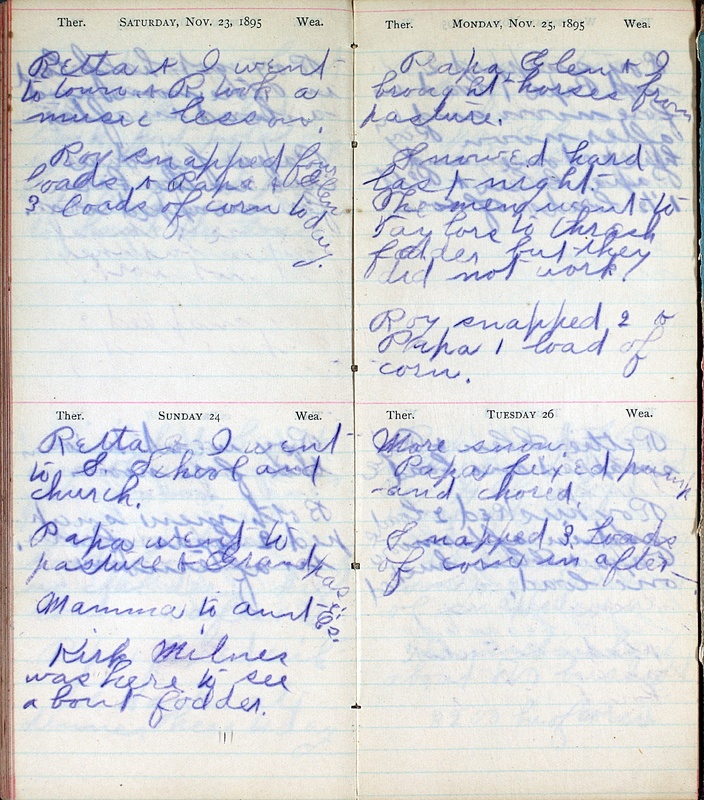 Ther. SATURDAY, NOV. 23, 1895 Wea.
Retta & I went
to town & R. took a
music lesson.
Roy snapped four
loads & Papa & Glen
3 loads of corn today.
Ther. SUNDAY 24 Wea.
Retta & I went
to S. School and
church.
Papa went to
pasture & Grandpas
Mamma to aunt
Kirk Milnes
was here to see
about fodder.
Ther. MONDAY, NOV. 25, 1895 Wea.
Papa Glen & I
brought horses from
pasture.
Snowed hard
last night.
The men went to
Taylors to thrash
fodder but they
did not work.
Roy snapped 2 &
Papa 1 load of
corn.
Ther. TUESDAY 26 Wea.
More snow.
Papa fixed pump
and chored.
Snapped 3 loads
of corn in after